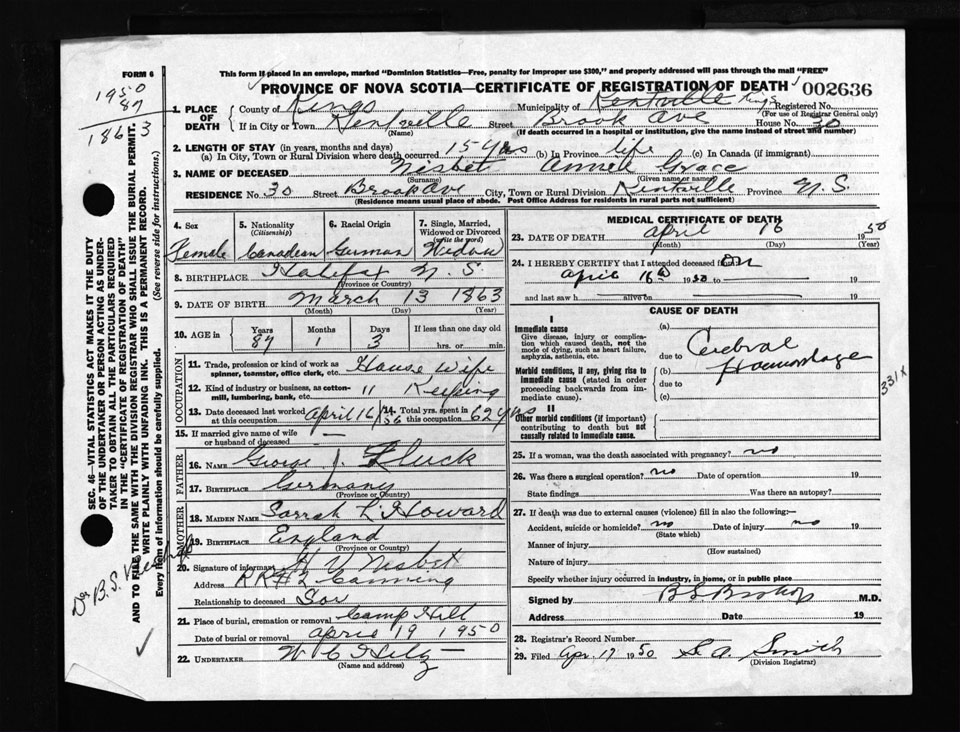 FORM 6
This form if placed in an envelope, marked "Dominion Statistics—Free, penalty for improper use $300," and properly addressed will pass through the mail "FREE"
PROVINCE OF NOVA SCOTIA—CERTIFICATE OF REGISTRATION OF DEATH 002636
1950
87
1863
1. PLACE OF DEATH County of Kings Municipality of Kentville Kings Registered No.
(For use of Registrar General only)
If in City or Town Kentville Street Brook Ave House No. 30
(Name) (If death occurred in a hospital or institution, give the name instead of street and number)
2. LENGTH OF STAY (in years, months and days)
(a) In City, Town or Rural Division where death occurred 15 yrs (b) In Province life (c) In Canada (if immigrant)
3. NAME OF DECEASED Nisbet Annell Grace
(Surname) (Given name or names)
RESIDENCE No. 30 Street Brook Ave City, Town or Rural Division Kentville Province N.S.
(Residence means usual place of abode. Post Office Address for residents in rural parts not sufficient)
4. Sex Female
5. Nationality (Citizenship) Canadian
6. Racial Origin German
7. Single, Married, Widowed or Divorced (write the word) Widow
8. BIRTHPLACE Halifax N.S
(Province or Country)
9. DATE OF BIRTH March 13 1863
(Month) (Day) (Year)
10. AGE in Years 87 Months 1 Days 3 If less than one day old hrs. or min.
OCCUPATION
11. Trade, profession or kind of work as spinner, teamster, office clerk, etc. House wife
12. Kind of industry or business, as cotton-mill, lumbering, bank, etc. " Keeping
13. Date deceased last worked at this occupation April 16/50 14. Total yrs. spent in this occupation 62 yrs
15. If married give name of wife or husband of deceased —
FATHER
16. NAME George J. Fluck
17. BIRTHPLACE Germany
(Province or Country)
MOTHER
18. MAIDEN NAME Sarrah L Howard
19. BIRTHPLACE England
(Province or Country)
20. Signature of informant H V Nisbet
Address RR#2 Canning
Relationship to deceased Son
21. Place of burial, cremation or removal Camp Hill
Date of burial or removal April 19 1950
22. UNDERTAKER W C Hiltz
(Name and address)
MEDICAL CERTIFICATE OF DEATH
23. DATE OF DEATH April 16 1950
(Month) (Day) (Year)
24. I HEREBY CERTIFY that I attended deceased from: on
April 16th 1950 to 19
and last saw h alive on 19
CAUSE OF DEATH
I
Immediate cause
Give disease, injury or complication which caused death, not the mode of dying, such as heart failure, asphyxia, asthenia, etc.
(a) Cerebral
due to Haemorrhage
Morbid conditions, if any, giving rise to immediate cause (stated in order proceeding backwards from immediate cause)
(b)
due to
(c)
II
Other morbid conditions (if important) contributing to death but not causally related to immediate cause.
331X
25. If a woman, was the death associated with pregnancy? no
26. Was there a surgical operation? no Date of operation 19
State findings Was there an autopsy?
27. If death was due to external causes (violence) fill in also the following:—
Accident, suicide or homicide? no Date of injury no 19
(State which)
Manner of injury
(How sustained)
Nature of injury
Specify whether injury occurred in industry, in home, or in public place
Signed by B S Bishop M.D.
Address Date 19
28. Registrar's Record Number
29. Filed Apr. 17 1950 S. A. Smith
(Division Registrar)
SEC. 46—VITAL STATISTICS ACT MAKES IT THE DUTY
OF THE UNDERTAKER OR PERSON ACTING AS UNDERTAKER TO OBTAIN ALL THE PARTICULARS REQUIRED
IN THE "CERTIFICATE OF REGISTRATION OF DEATH"
AND TO FILE THE SAME WITH THE DIVISION REGISTRAR WHO SHALL ISSUE THE BURIAL PERMIT.
WRITE PLAINLY WITH UNFADING INK. THIS IS A PERMANENT RECORD.
Every item of information should be carefully supplied. (See reverse side for instructions.)
Dr B.S.